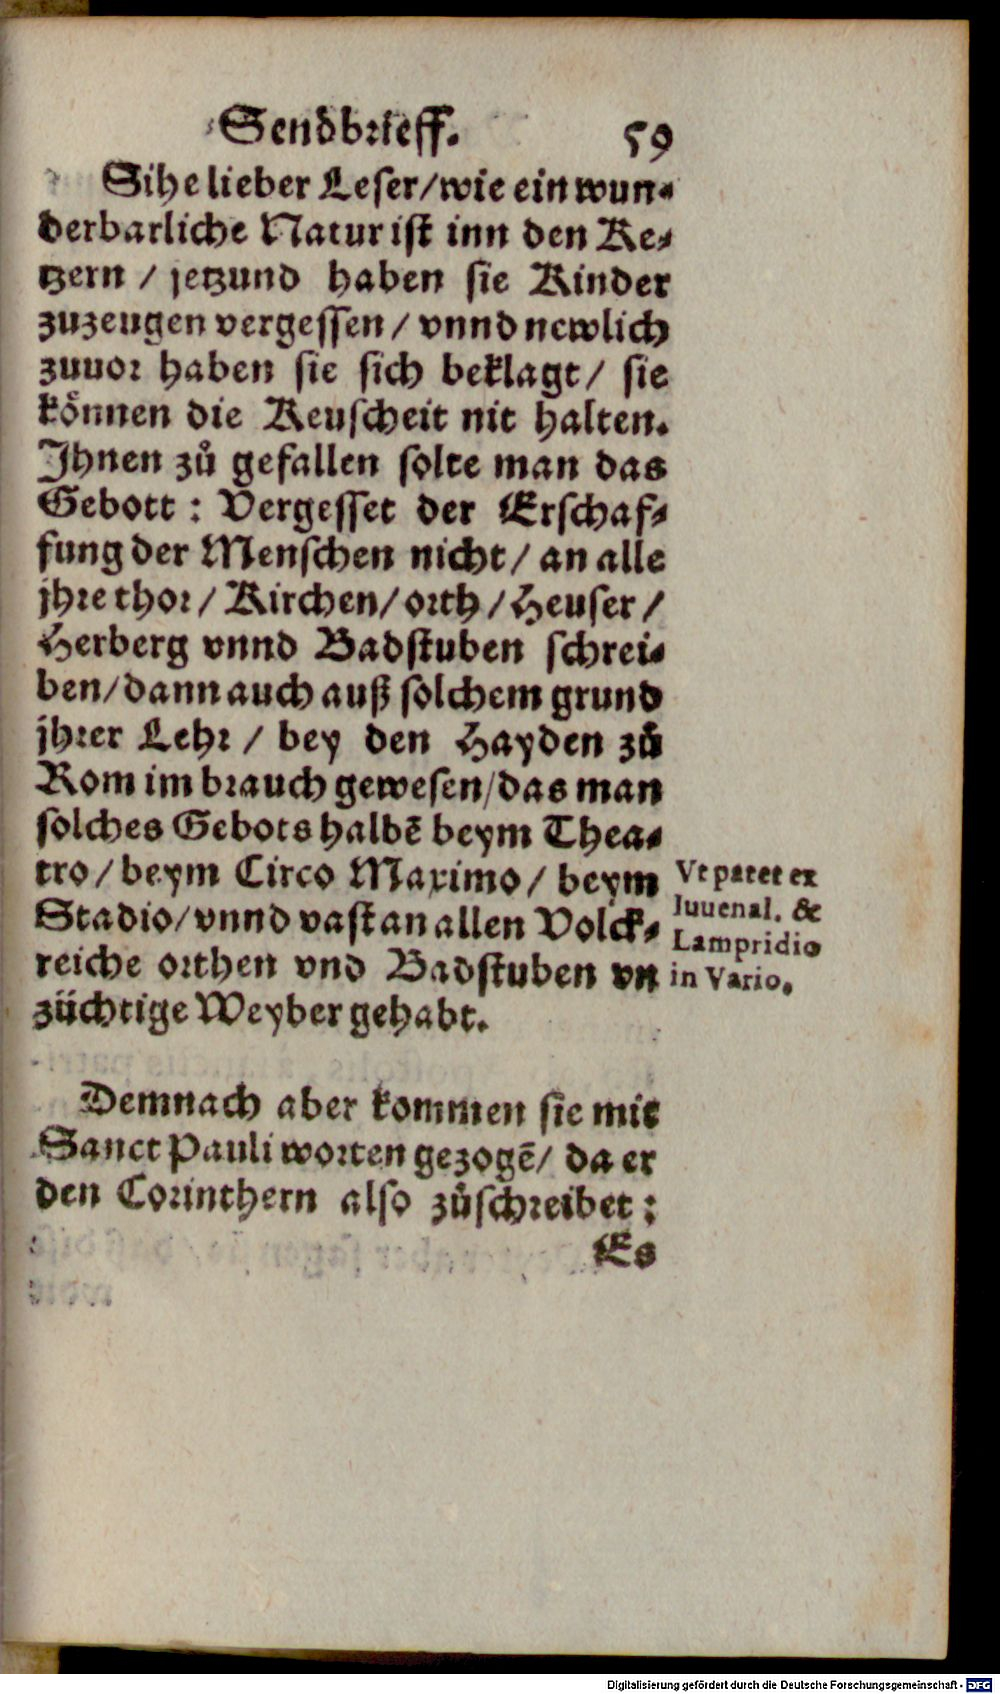 Sendbrieff. 59
Sihe lieber Leser/wie ein wun-
derbarliche Natur ist inn den Ke-
tzern / jetzund haben sie Kinder
zuzeugen vergessen / vnnd newlich
zuuor haben sie sich beklagt/ sie
können die Keuscheit nit halten.
Ihnen zů gefallen solte man das
Gebott: Vergesset der Erschaf-
fung der Menschen nicht/ an alle
jhre thor/ Kirchen/ orth/ Heuser/
Herberg vnnd Badstuben schrei-
ben/dann auch auß solchem grund
jhrer Lehr / bey den Hayden zů
Rom im brauch gewesen/das man
solches Gebots halbē beym Thea-
tro/ beym Circo Maximo/ beym
Stadio/vnnd vast an allen Volck-
reiche orthen vnd Badstuben vn
züchtige Weyber gehabt.
Vt patet ex
Iuuenal. &
Lampridio
in Vario.
Demnach aber kommen sie mit
Sanct Pauli worten gezogē/ da er
den Corinthern also zůschreibet:
Es
Digitalisierung gefördert durch die Deutsche Forschungsgemeinschaft - DFG